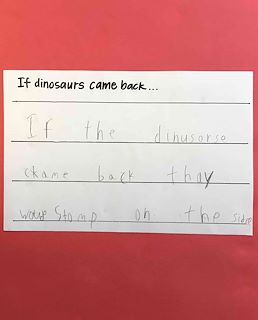 If dinosaurs came back...
If the dinusorso
ckame back thay
Stomp on the side